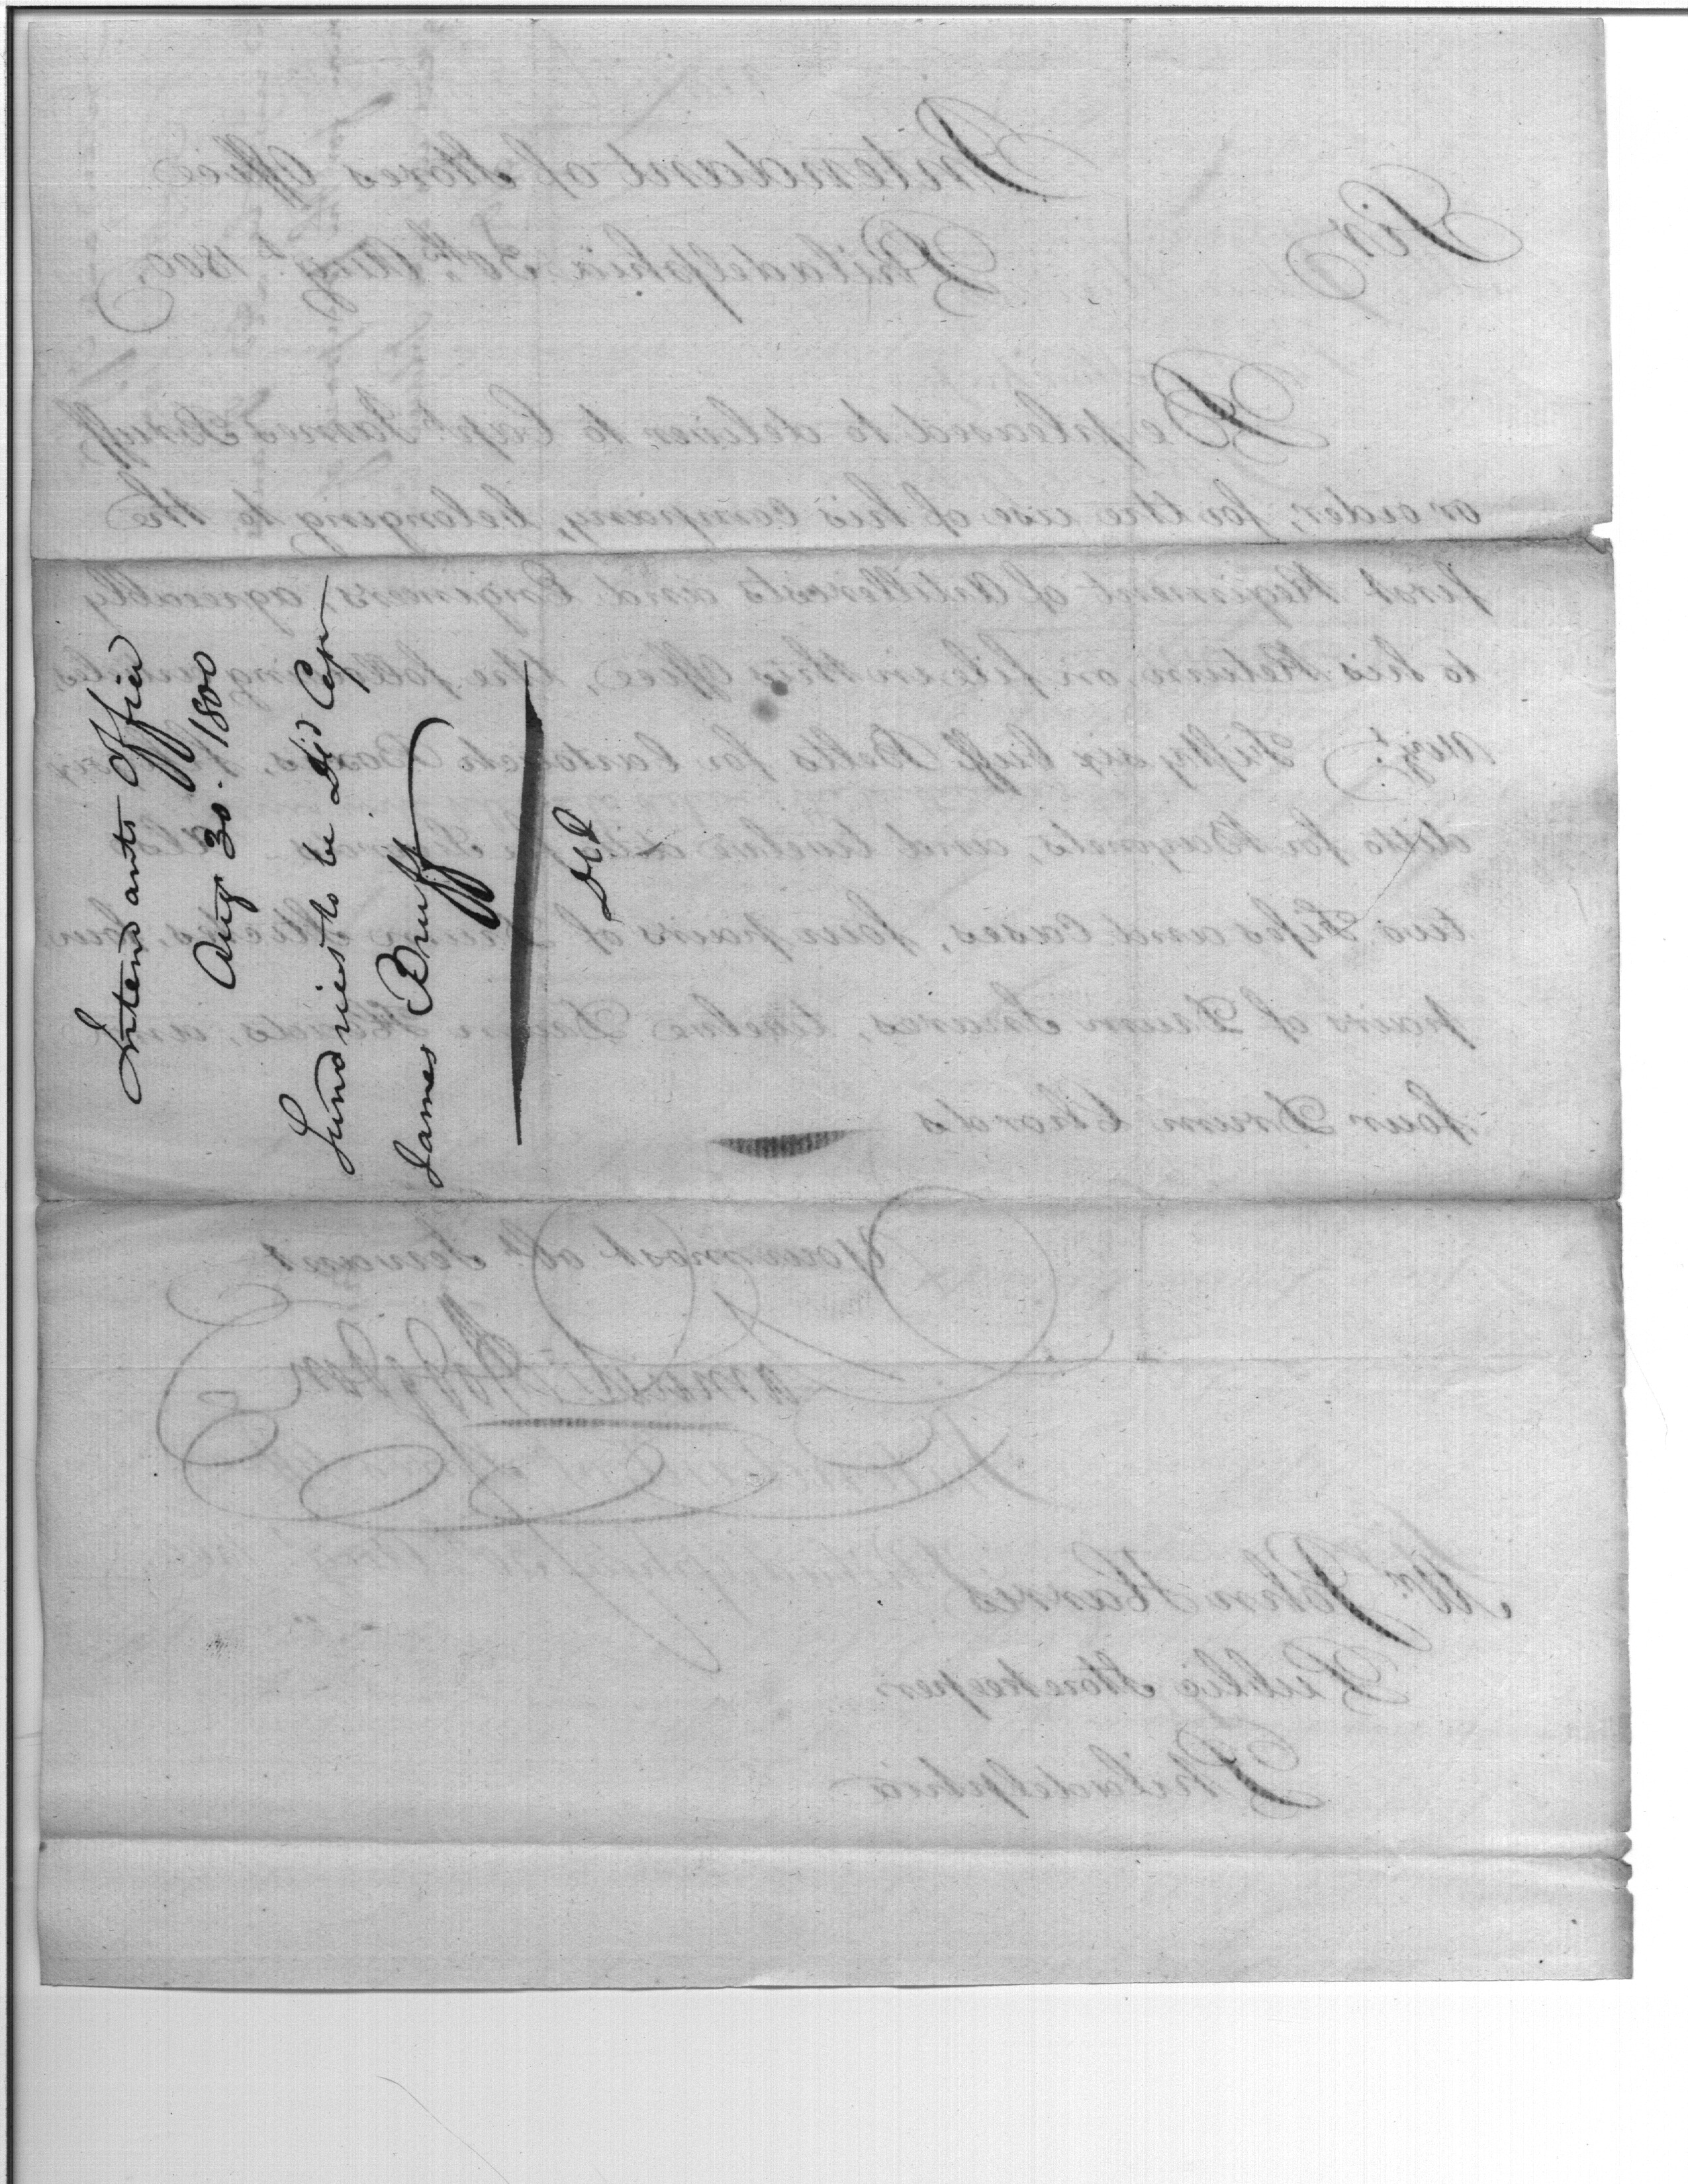 Intendants Office
Aug 30. 1800
Sundries to be Del'd Cap
James Bruff
Dld
Intendant of Stores Office
Philadelphia 30th Augt. 1800,
Sir
Be pleased to deliver to Capt. James Bruff
or order, for the use of his company, belonging to the
first Regiment of Artillerists and Engineers, agreeably
to his Return on file in this Office, the following articles
Vizt. Fifty six buff Belts for Cartouch Boxes,
ditto for Bayonets and twelve
two Fifes and Cases, four pairs of Drum Sticks, four
pairs of Drum Snares, twelve Drum Heads, and
four Drum Chords
Your most obt. Servant
Mr. John Harris
Public Storekeeper
Philadelphia